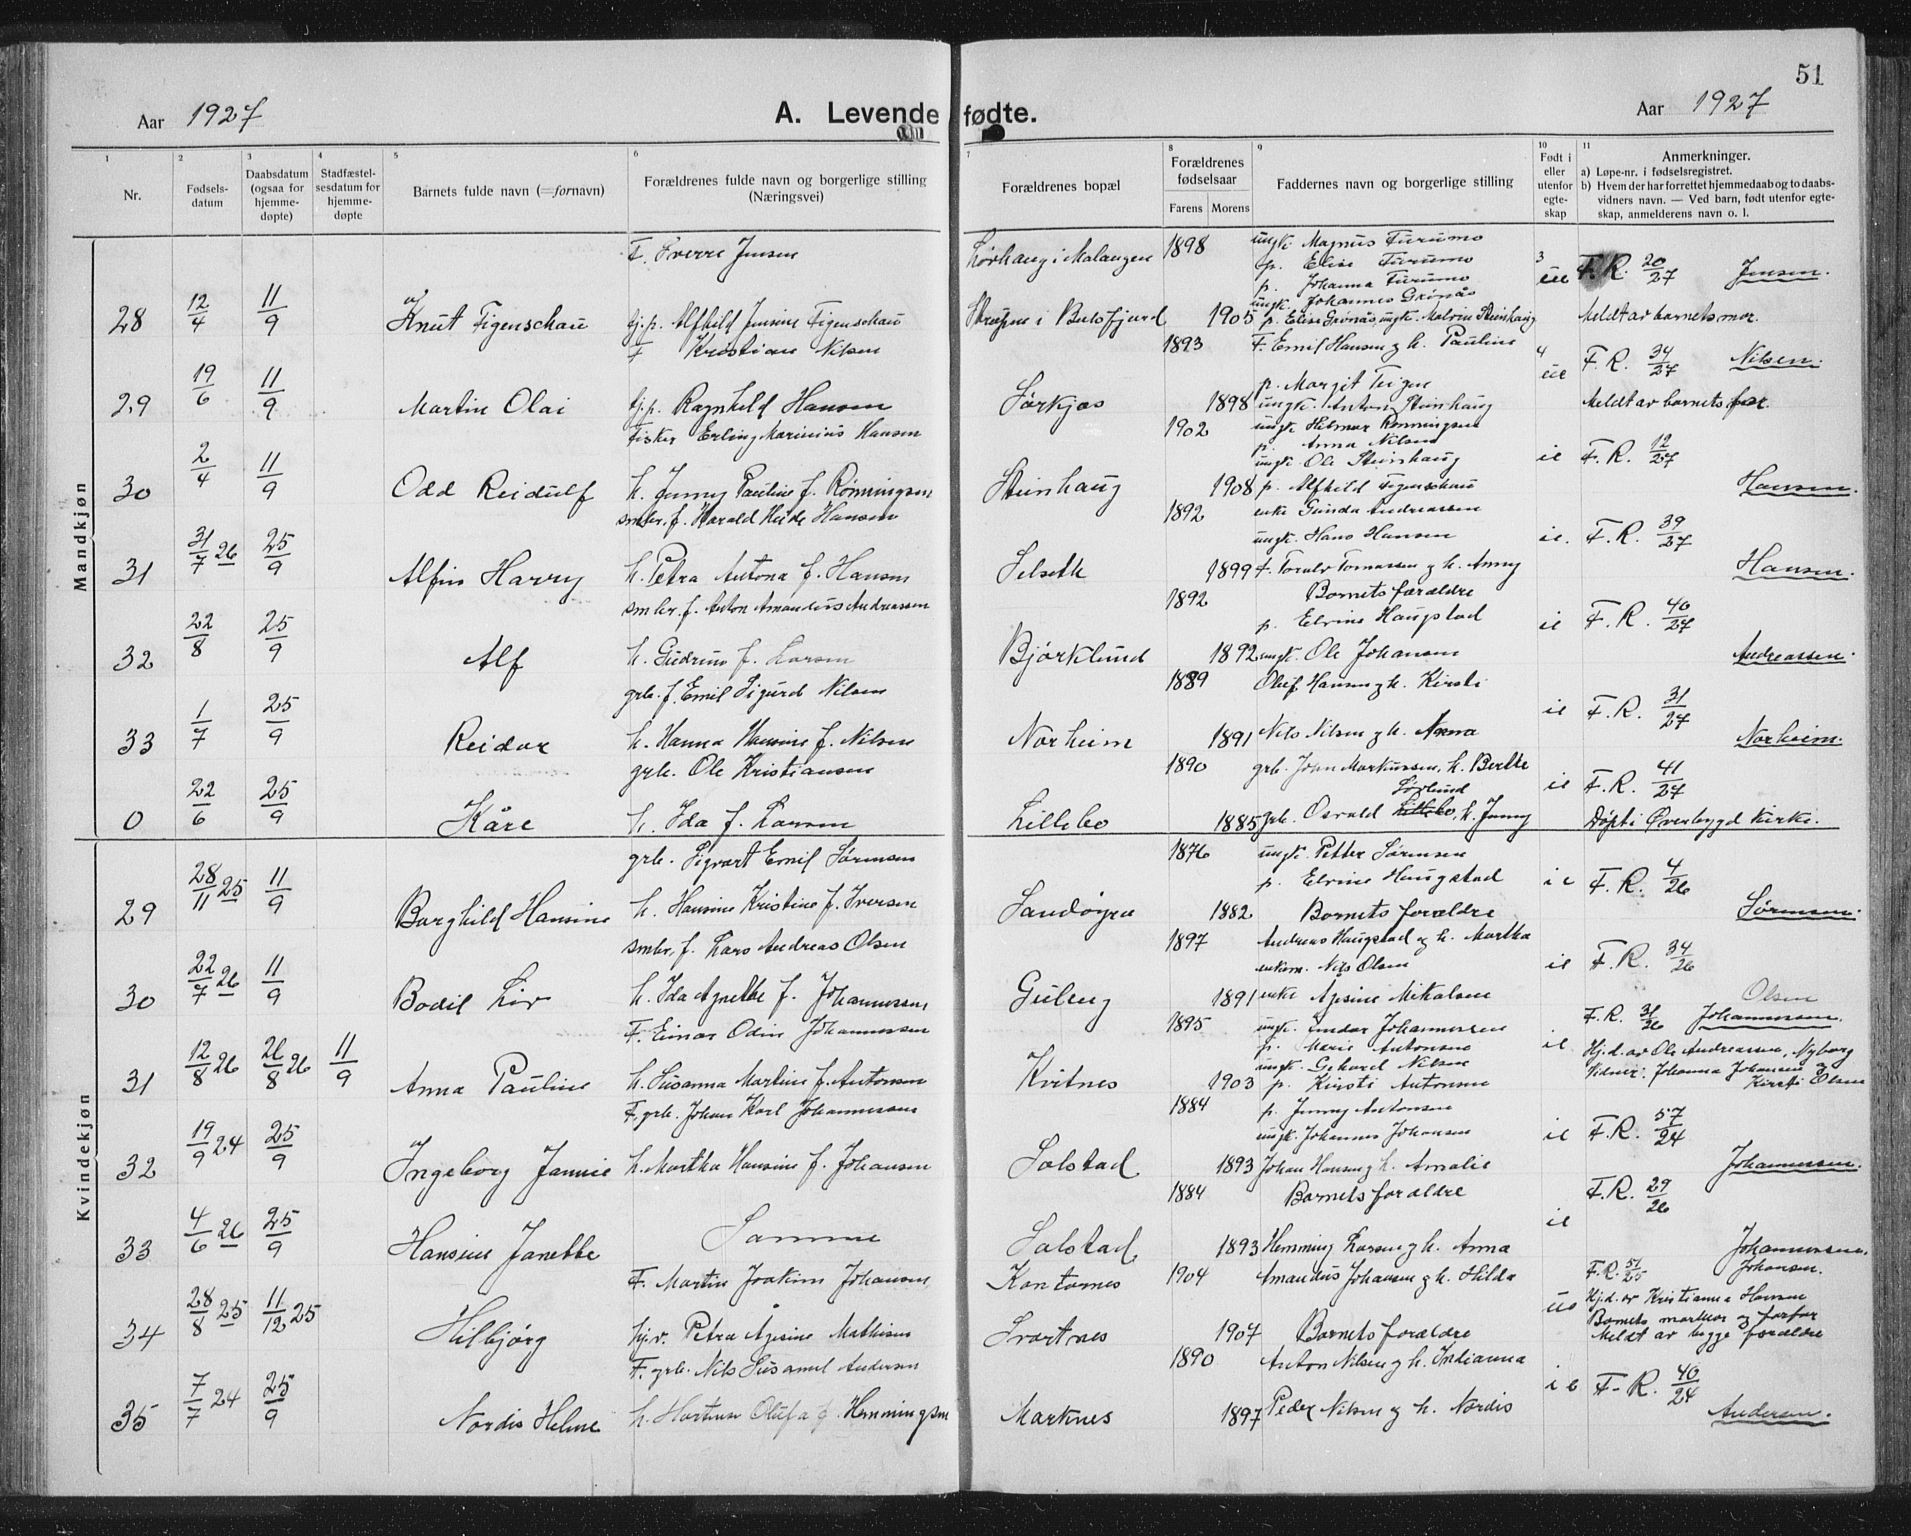 51
Aar 1927
A. Levende fødte.
Aar 1927
1 2 3 4 5 6 7 8 9 10 11
Nr.
Fødsels-datum
Daabsdatum (ogsaa for hjemme-døpte)
Stadfæstel-sesdatum for hjemme-døpte
Barnets fulde navn (=fornavn)
Forældrenes fulde navn og borgerlige stilling (Næringsvei)
Forældrenes bopæl
Forældrenes fødselsaar
Farens Morens
Faddernes navn og borgerlige stilling
Født i eller utenfor egte-skap
Anmerkninger.
a) Løpe-nr. i fødselsregistret.
b) Hvem der har forrettet hjemmedaab og to daabs-
vidners navn. — Ved barn, født utenfor egte-
skap, anmelderens navn o. l.
Mandkjøn
F. Sverre Jensen Sørhaug i Malangen 1898 ungk. Magnus Furumo
p. Elise Furumo
p. Johanna Furumo
3 ue F.R. 20/27 Jensen.
ungk. Johannes Grønås
28 12/4 11/9 Knut Figenschau tj.p. Alfhild Jensine Figenschau i Balsfjord 1905 p. Elise Grønås, ungk. Malvin Steinhaug Meldt av barnets mor.
F Kristian Nilsen 1893 F. Emil Hansen g h. Pauline
4 ue F.R. 34/27 Nilsen.
p. Margit Teigen
29 19/6 11/9 Martin Olai tj.p. Ragnhild Hansen Sørkjos 1898 ungk. Anton Steinhaug Meldt av barnets far.
Fisker Erling Marinius Hansen 1902 ungk Hilmar Rønningsen
p. Anna Nilsen
ungk. Ole Steinhaug
il F.R. 12/27
30 2/4 11/9 Odd Reidulf h. Jenny Pauline f. Rønningsen Steinhaug 1908 p. Alfhild Figenschau Hansen.
smbr. f. Harald Heide Hansen 1892 enke Gunda Andreassen
ungk. Hans Hansen il. F.R. 39/27
31 31/7 26 25/9 Alfin Harry h. Petra Antona f. Hansen Selseth 1899 F. Toralv Tomassen g h. Anny Hansen.
smbr. f. Anton Amandus Andreassen 1892 Barnets forældre
p. Elvine Haugstad il F.R. 40/27
32 22/8 25/9 Alf h. Gudrun f. Larsen Bjørklund 1892 ungk. Ole Johansen Andreassen.
grb. f. Emil Sigurd Nilsen 1889 Oluf Hansen g h. Kirsti
il F.R. 31/27
33 1/7 25/9 Reidar h. Hanna Hansine f. Nilsen Norheim 1891 Nils Nilsen g h. Anna Norheim.
grb. Ole Kristiansen 1890 grb. Johan Markussen, h. Berthe
Sørlund il F.R. 41/27
0 22/6 25/9 Kåre h. Ida f. Larsen Lillebo 1885 grb. Osvald Lillebo, h. Jenny Døpt i Øverbygd kirke.
Kvindekjøn
grb. Sigvart Emil Sørensen 1876 ungk. Petter Sørensen
p. Elvine Haugstad il F.R. 4/26
29 28/11 25 11/9 Borghild Hansine h. Hansine Kristine f. Iversen Sandøyra 1882 Barnets forældre Sørensen.
smbr. f. Lars Andreas Olsen 1897 Andreas Haugstad g h. Martha
enkem. Nils Olsen il F.R. 34/26
30 22/7 26 11/9 Bodil Liv h. Ida Agnethe f. Johannessen Guleng 1891 enke Agsine Mikalsen Olsen
F. Einar Odin Johannessen 1895 ungk. Johannessen
p. Marie Antonsen
ungk. Gehard Nilsen
il F.R. 31/26 Johannessen.
Hj.d. av Ole Andreassen, Nyborg
Vidner: Johanna Johansen og
Kirsti Olsen
31 12/8 26 26/8 26 11/9 Anna Pauline h. Susanna Martine f. Antonsen Kvitnes 1903 p. Kirsti Antonsen
F. grb. Johan Karl Johannessen 1884 p. Jenny Antonsen
ungk. Johannes Johansen il F.R. 57/24
32 19/9 24 25/9 Ingeborg Jannie h. Martha Hansine f. Johansen Solstad 1893 Johan Hansen g h. Amalie Johannessen.
1884 Barnets forældre F.R. 29/26
il
33 4/6 26 25/9 Hansine Janethe Samme Solstad 1893 Hemming Larsen g h. Anna Johannessen.
F. Martin Joakim Johansen Kantornes 1904 Amandus Johansen g h. Hilda F.R. 51/25 Johansen.
ue Hj.d. av Kristianna Hansen
Barnets mormor og farfar
34 28/8 25 11/12 25 Hilbjørg hj.v. Petra Agsine Mathisen Svartnes 1907 Barnets forældre Meldt av begge forældre
F. grb. Nils Susamel Andersen 1890 Anton Nilsen g h. Indianna
il F.R. 40/24
35 7/7 24 25/9 Nordis Helene h. Olufa f. Hemmingsen Marknes 1897 Peder Nilsen g h. Nordis Andersen.